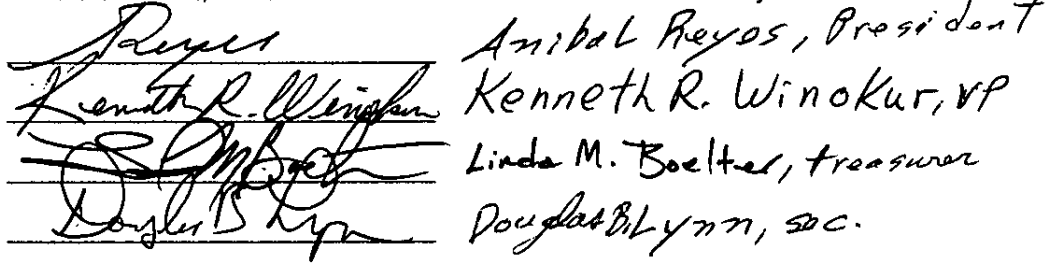 Reyes Anibal Reyes, President
Kenneth R. Winokur Kenneth R. Winokur, VP
M Boelter Linda M. Boelter, treasurer
Douglas B Lynn Douglas B. Lynn, sec.